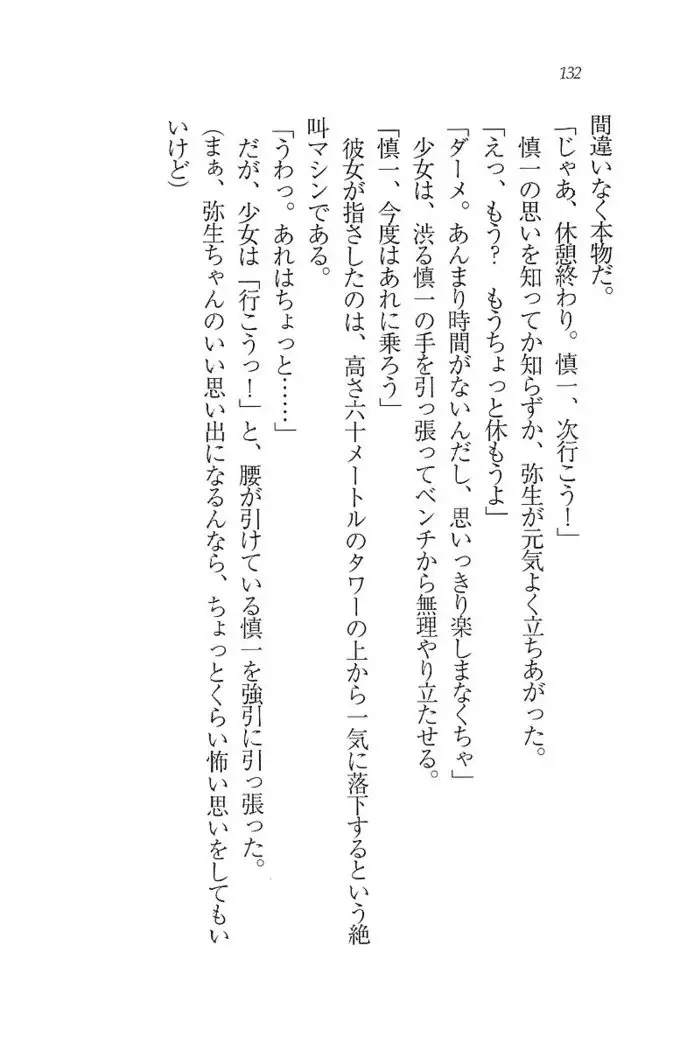 132
間違いなく本物だ。
「じゃあ、休憩終わり。慎一、次行こう！」
慎一の思いを知ってか知らずか、弥生が元気よく立ちあがった。
「えっ、もう？　もうちょっと休もうよ」
「ダーメ。あんまり時間がないんだし、思いっきり楽しまなくちゃ」
少女は、渋る慎一の手を引っ張ってベンチから無理やり立たせる。
「慎一、今度はあれに乗ろう」
彼女が指さしたのは、高さ六十メートルのタワーの上から一気に落下するという絶
叫マシンである。
「うわっ。あれはちょっと……」
だが、少女は「行こうっ！」と、腰が引けている慎一を強引に引っ張った。
(まぁ、弥生ちゃんのいい思い出になるんなら、ちょっとくらい怖い思いをしてもい
いけど)